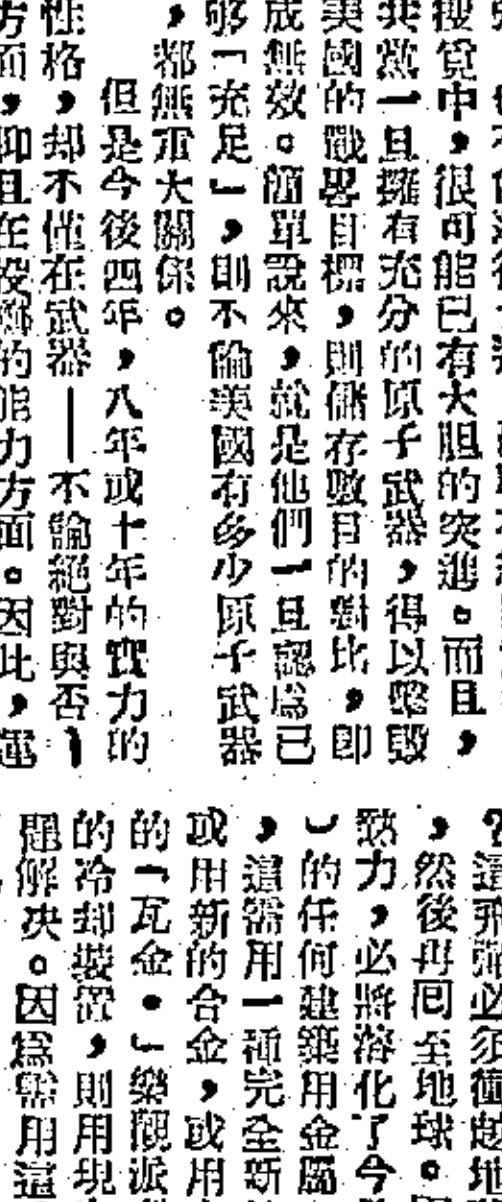 搜覓中，很可能已有大胆的突進。而且，
共黨一旦擁有充分的原子武器，得以擊毀
美國的戰畧目標，則儲存數目的對比，即
成無效。簡單說來，就是他們一旦認爲已
够「充足」，則不論美國有多少原子武器
，都無重大關係。
但是今後四年，八年或十年的實力的
性格，却不僅在武器——不論絕對與否
方面，抑且在投擲的能力方面。因此，運
？這飛彈必須衝越地
，然後再囘至地球。
熱力，必將溶化了今
）的任何建築用金屬
，這需用一種完全新
或用新的合金，或用
的「瓦金•」樂觀派
的冷却裝置，則用現
題解决。因爲需用這